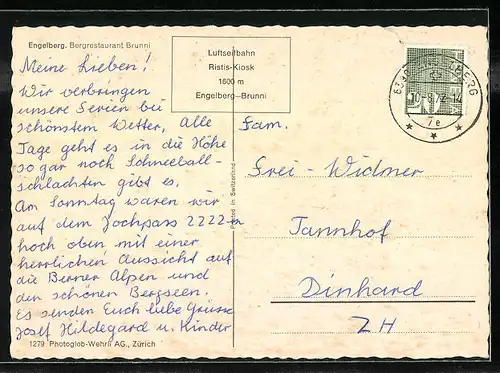 Engelberg. Bergrestaurant Brunni
Meine Lieben!
Wir verbringen
unsere Serien bei
schönstem Wetter, Alle
Tage geht es in die Höhe
sogar noch Schneeball-
schlachten gibt es.
Am Sonntag waren wir
auf dem Jochpass 2222 m
hoch oben mit einer
herrlichen Aussicht auf
die Berner Alpen und
den schönen Bergseen.
Es senden Euch liebe Grüsse
Josef Hildegard u. Kinder
1279 Photoglob-Wehrli AG., Zürich
Luftseilbahn
Ristis-Kiosk
1600 m
Engelberg—Brunni
Printed in Switzerland
7e
Fam.
Frei-Widmer
Tannhof
Dinhard
ZH